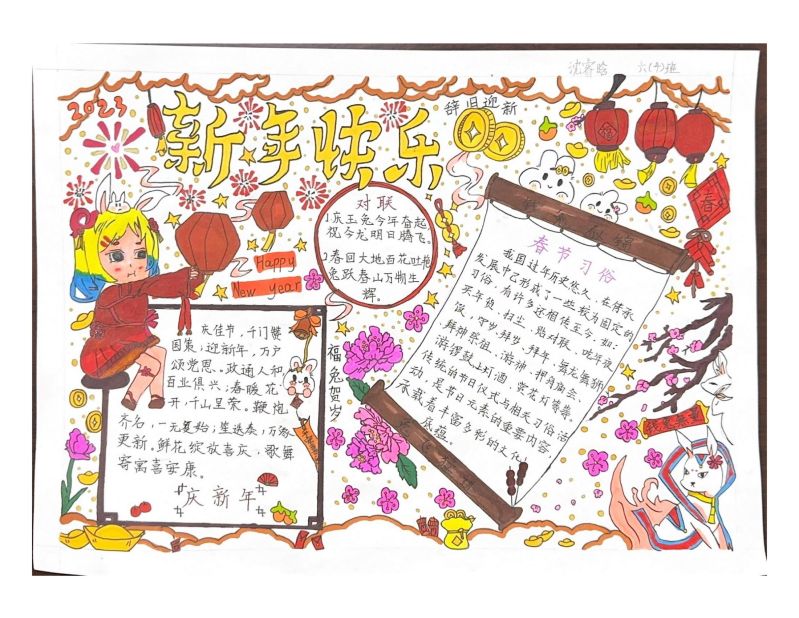 沈睿晗 六(4)班
2023
新年快乐
辞旧迎新
对联
1.庆玉兔今年奋起
祝今龙明日腾飞。
2.春回大地百花吐艳
兔跃春山万物生
辉。
Happy
New year
春
春节习俗
我国过年历史悠久，在传承
发展中已形成了一些较为固定的
习俗，有许多还相传至今，如：
买年货、扫尘、贴对联、吃年夜
饭、守岁、拜岁、拜年、舞龙舞狮
拜神祭祖、
游锣鼓、上灯酒、赏花灯等等。
传统的节日仪式与相关习俗活
动，是节日元素的重要内容
承载着丰富多彩的文化
底蕴。
福兔贺岁
庆佳节，千门赞
国策；迎新年，万户
颂党恩。政通人和
百业俱兴；春暖花
开，千山呈荣。鞭炮
齐名，一元复始；笙送泰，万象
更新。鲜花绽放喜庆，歌舞
寄寓喜安康。
庆新年